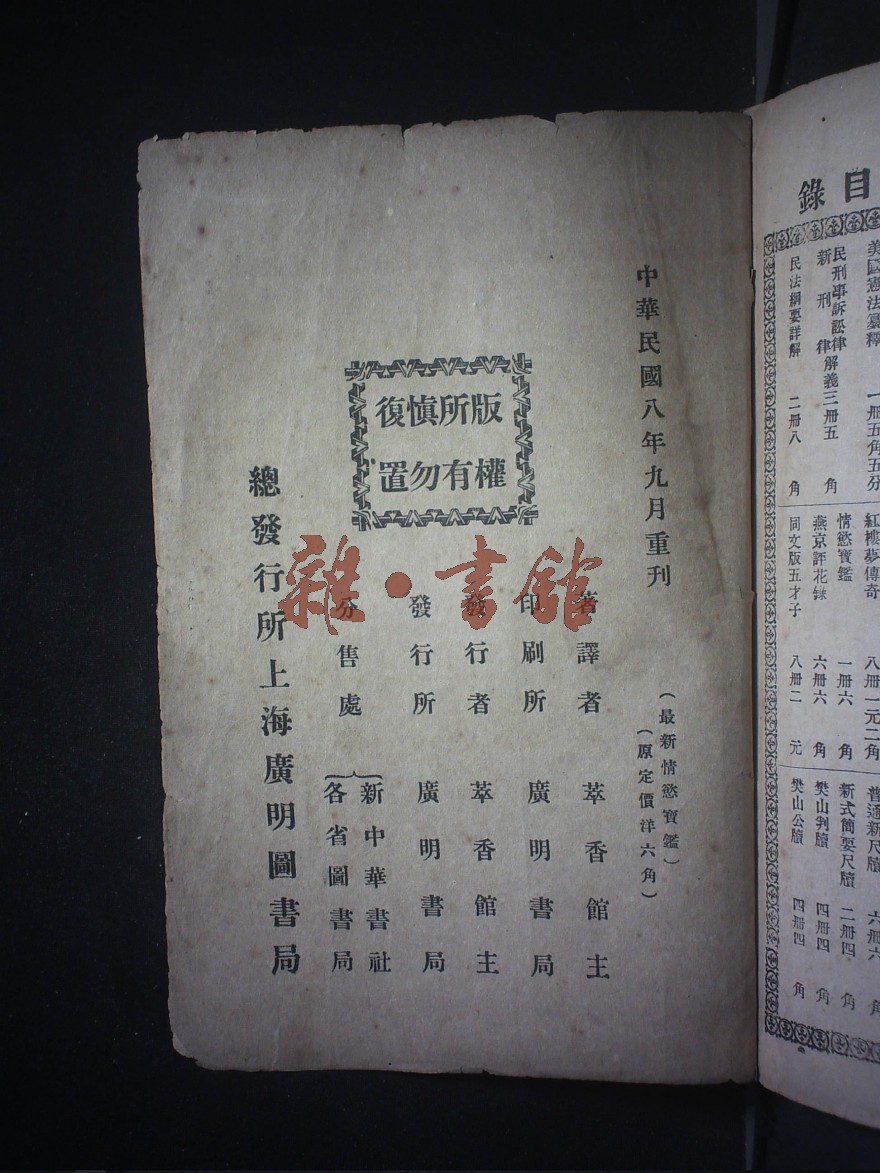 目錄
美國憲法纂釋 一冊五角五分
民刑事訴訟律解義三冊五角
新刑律
民法綱要詳解 二冊八角
紅樓夢傳奇 八冊一元二角
情慾寶鑑 一冊六角
燕京評花錄 六冊六角
同文版五才子 八冊二元
普通新尺牘 六冊六角
新式簡要尺牘 二冊四角
樊山判牘 四冊四角
樊山公牘 四冊四角
中華民國八年九月重刊
(最新情慾寶鑑)
(原定價洋六角)
版權
所有
慎勿
復置
著譯者 萃香館主
印刷所 廣明書局
發行者 萃香館主
發行所 廣明書局
分售處 新中華書社
各省圖書局
總發行所上海廣明圖書局
雜·書館